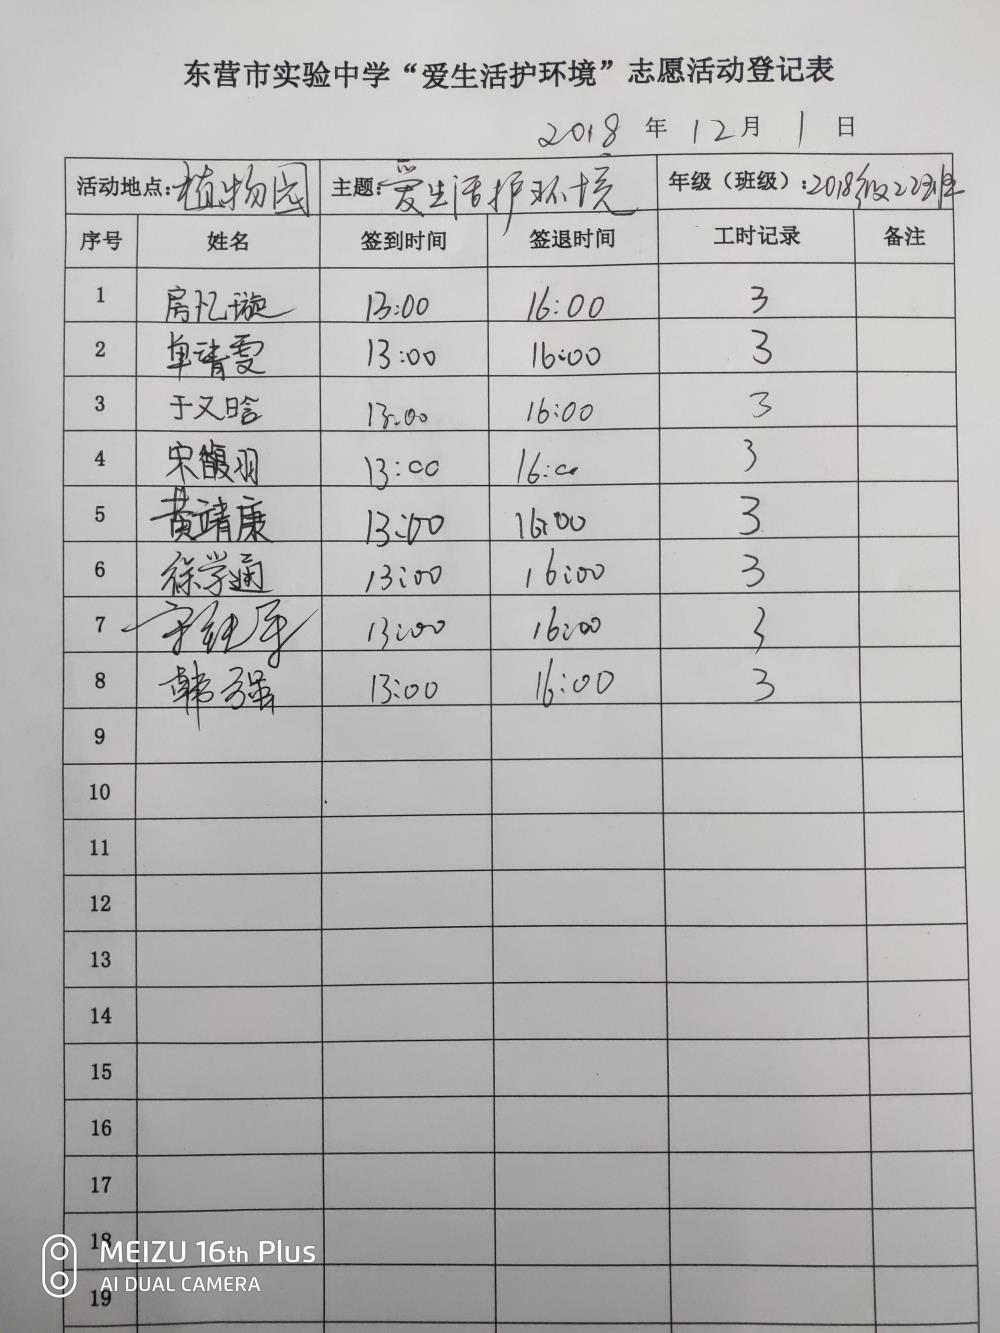 东营市实验中学“爱生活护环境”志愿活动登记表
2018 年 12 月 1 日
活动地点:植物园 主题:爱生活护环境 年级（班级）:2018级22班
序号 姓名 签到时间 签退时间 工时记录 备注
1 房忆璇 13:00 16:00 3
2 单清雯 13:00 16:00 3
3 于又晗 13:00 16:00 3
4 宋馥羽 13:00 16:00 3
5 黄靖康 13:00 16:00 3
6 徐学通 13:00 16:00 3
7 13:00 16:00 3
8 韩强 13:00 16:00 3
9
10
11
12
13
14
15
16
17
18
19
MEIZU 16th Plus
AI DUAL CAMERA